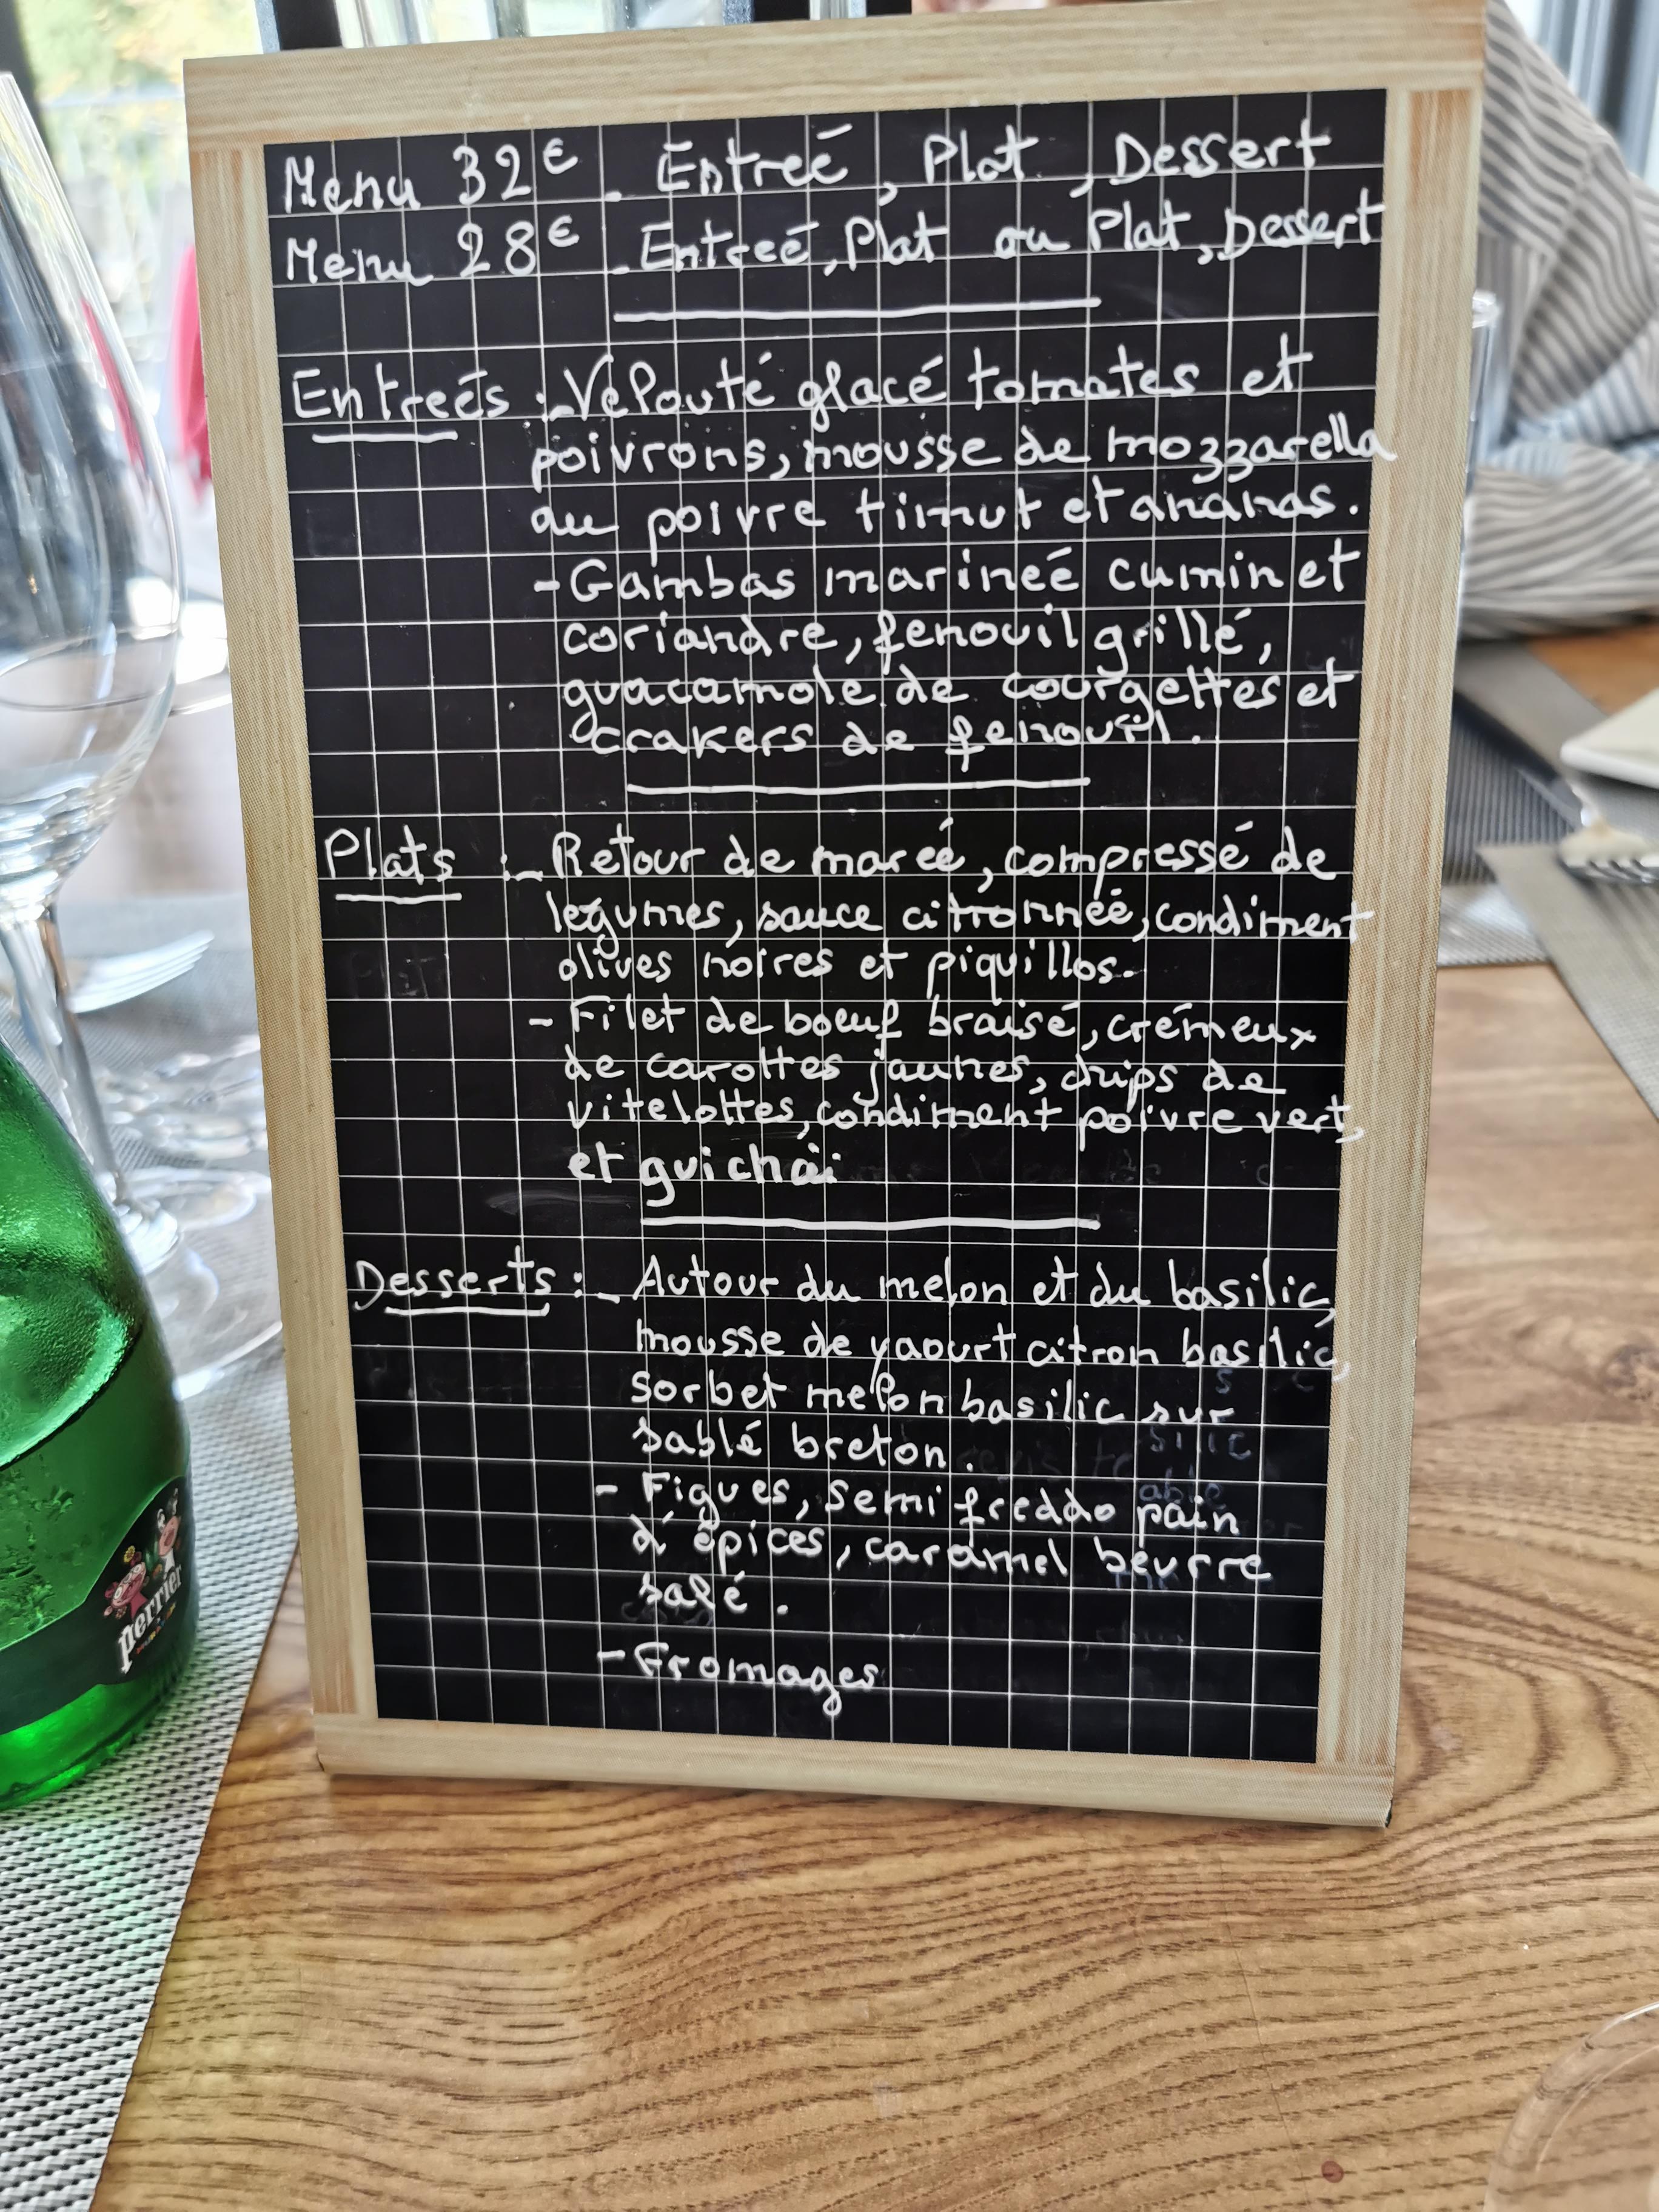 Menu 32€ - Entreé, Plat, Dessert
Menu 28€ - Entreé, Plat ou Plat, Dessert
Entreés : - Velouté glacé tomates et
poivrons, mousse de mozzarella
au poivre timut et ananas.
- Gambas marineé cumin et
coriandre, fenouil grillé,
guacamole de courgettes et
crakers de fenouil.
Plats : - Retour de mareé, compressé de
legumes, sauce citronneé, condiment
olives noires et piquillos.
- Filet de boeuf braisé, crémeux
de carottes jaunes, chips de
vitelottes, condiment poivre vert,
et guichai
Desserts : - Autour du melon et du basilic,
mousse de yaourt citron basilic,
sorbet melon basilic sur
sablé breton.
- Figues, semi freddo pain
d'épices, caramel beurre
salé.
- Fromages
perrier